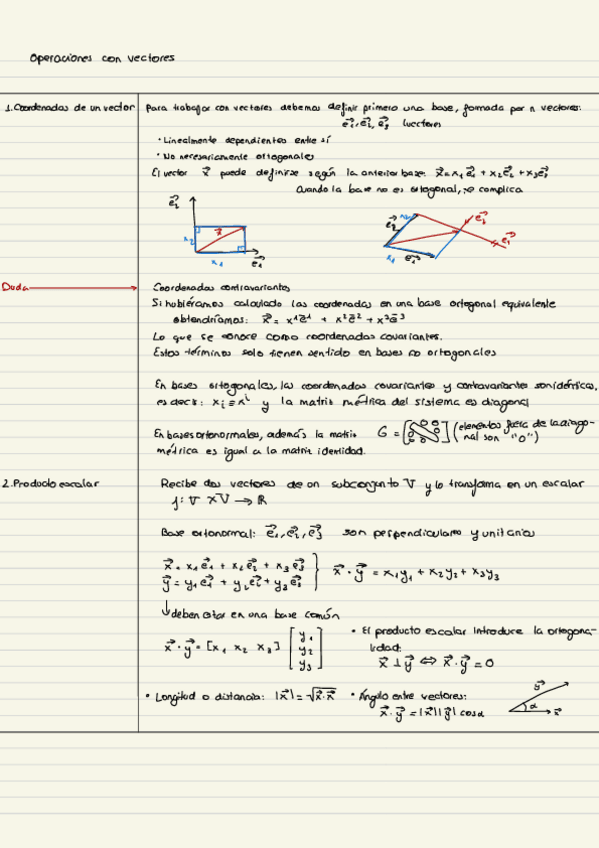 Operaciones con vectores
1. Coordenadas de un vector
Para trabajar con vectores debemos definir primero una base, formada por n vectores:
e⃗₁, e⃗₂, e⃗₃ vectores
· Linealmente dependientes entre sí
· No necesariamente ortogonales
El vector x⃗ puede definirse según la anterior base: x⃗ = x₁e⃗₁ + x₂e⃗₂ + x₃e⃗₃
Cuando la base no es ortogonal, se complica
e⃗₂ x₂ x⃗ x₁ e⃗₁
e⃗₂ x₂ x₁ e⃗₁ e⃗₂ e⃗₁
Duda
Coordenadas contravariantes
Si hubiéramos calculado las coordenadas en una base ortogonal equivalente
obtendríamos: x⃗ = x¹e⃗¹ + x²e⃗² + x³e⃗³
Lo que se conoce como coordenadas covariantes.
Estos términos solo tienen sentido en bases no ortogonales
En bases ortogonales, las coordenadas covariantes y contravariante son idénticas,
es decir: xᵢ = xⁱ y la matriz métrica del sistema es diagonal
G = (elementos fuera de la diago-
nal son "0")
En bases ortonormales, además la matriz
métrica es igual a la matriz identidad.
2. Producto escalar
Recibe dos vectores de un subconjunto V y lo transforma en un escalar
f: V x V → ℝ
Base ortonormal: e⃗₁, e⃗₂, e⃗₃ son perpendiculares y unitarios
x⃗ = x₁e⃗₁ + x₂e⃗₂ + x₃e⃗₃
y⃗ = y₁e⃗₁ + y₂e⃗₂ + y₃e⃗₃
x⃗ · y⃗ = x₁y₁ + x₂y₂ + x₃y₃
↓ deben estar en una base común
x⃗ · y⃗ = [x₁ x₂ x₃] [y₁ y₂ y₃]
· El producto escalar introduce la ortogona-
lidad:
x⃗ ⊥ y⃗ ⇔ x⃗ · y⃗ = 0
· Longitud o distancia: |x⃗| = √x⃗·x⃗
· Ángulo entre vectores:
x⃗ · y⃗ = |x⃗||y⃗| cos α
y⃗ α x⃗